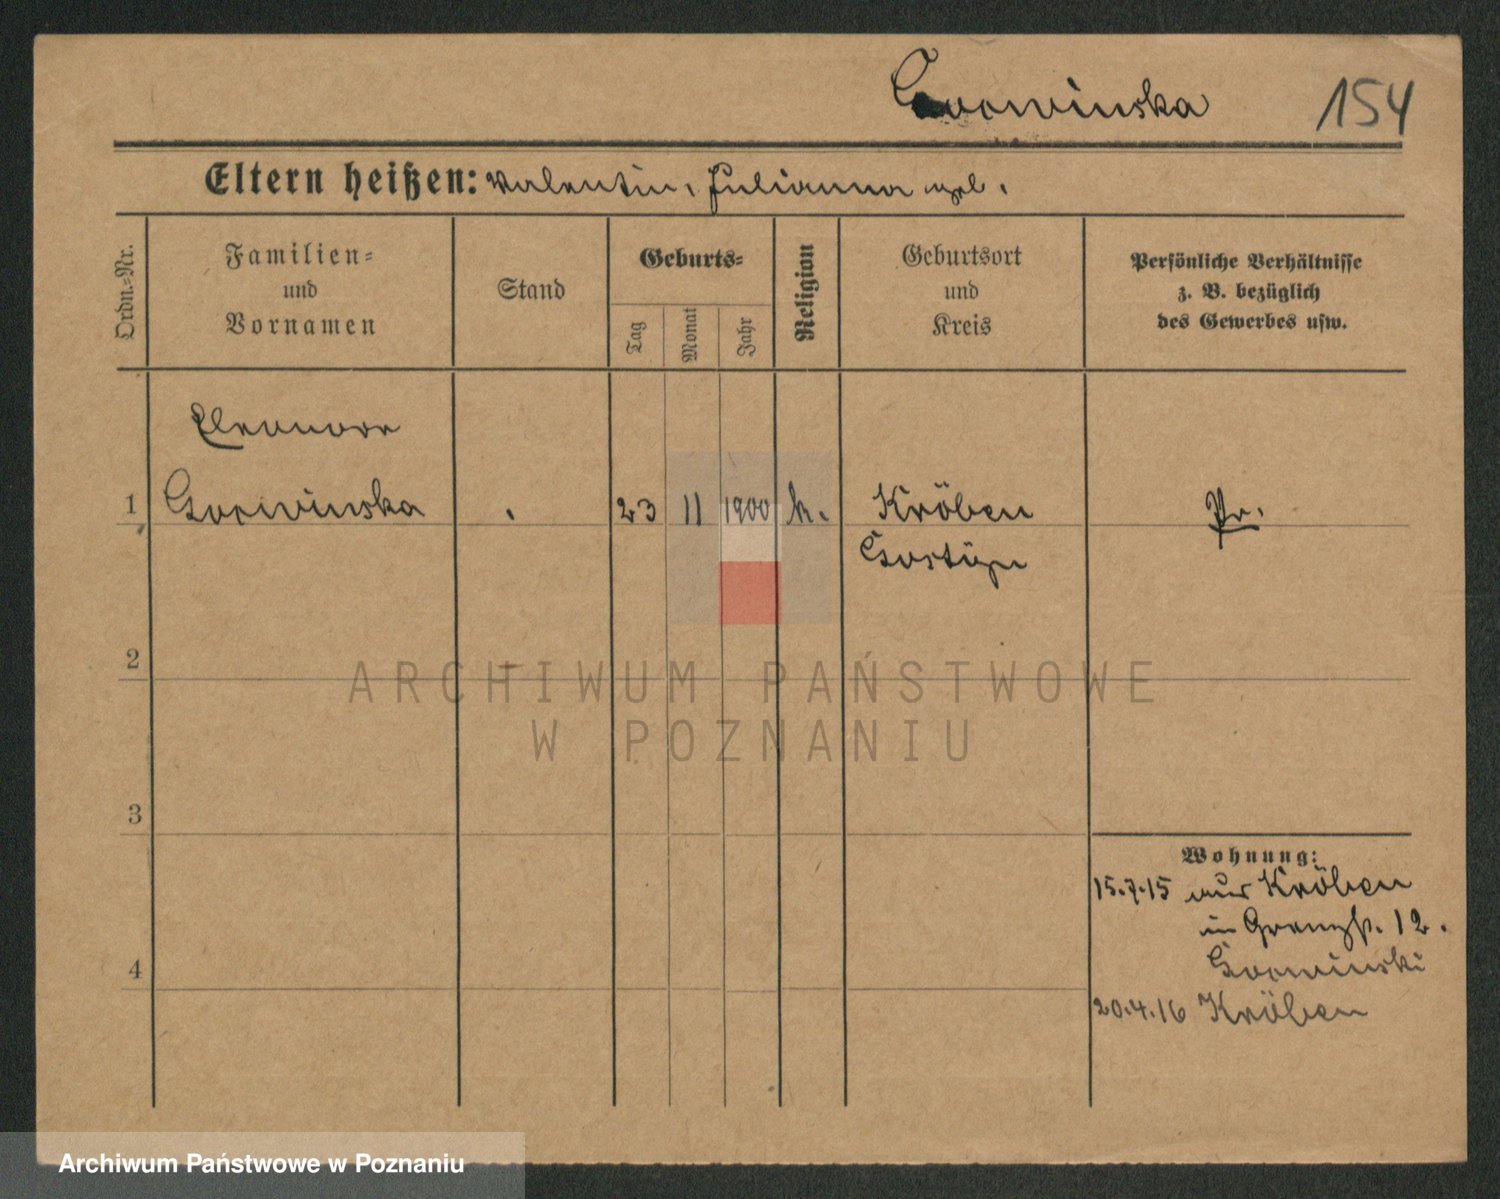 Gorwinska
154
Eltern heißen: Valentin, Julianna geb.
Ordn.-Nr.
Familien-
und
Vornamen
Stand
Geburts-
Tag
Monat
Jahr
Religion
Geburtsort
und
Kreis
Persönliche Verhältnisse
z. B. bezüglich
des Gewerbes usw.
Eleonore
1 Gorwinska 23 11 1900 k. Kröben Pr.
Gostÿn
2
3
4
Wohnung:
15.7.15 aus Kröben
in Grenzstr. 12.
Gorwinski
20.4.16 Kröben
ARCHIWUM PAŃSTWOWE
W POZNANIU
Archiwum Państwowe w Poznaniu